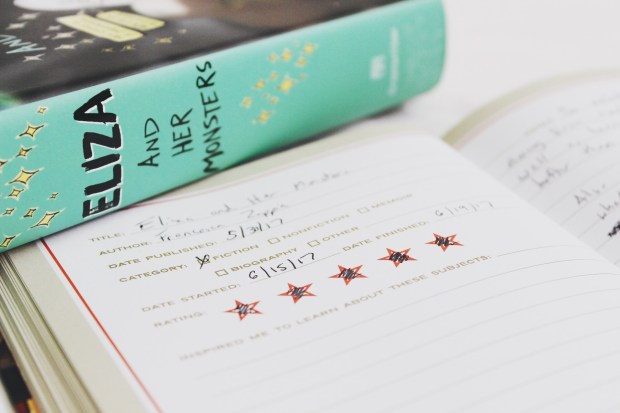 AND
ELIZA
AND
HER
MONSTERS
TITLE: Eliza and Her Monsters
AUTHOR: Francesca Zappia
DATE PUBLISHED: 5/30/17
CATEGORY: FICTION NONFICTION MEMOIR
BIOGRAPHY OTHER
DATE STARTED: 6/15/17 DATE FINISHED: 6/19/17
RATING:
INSPIRED ME TO LEARN ABOUT THESE SUBJECTS: